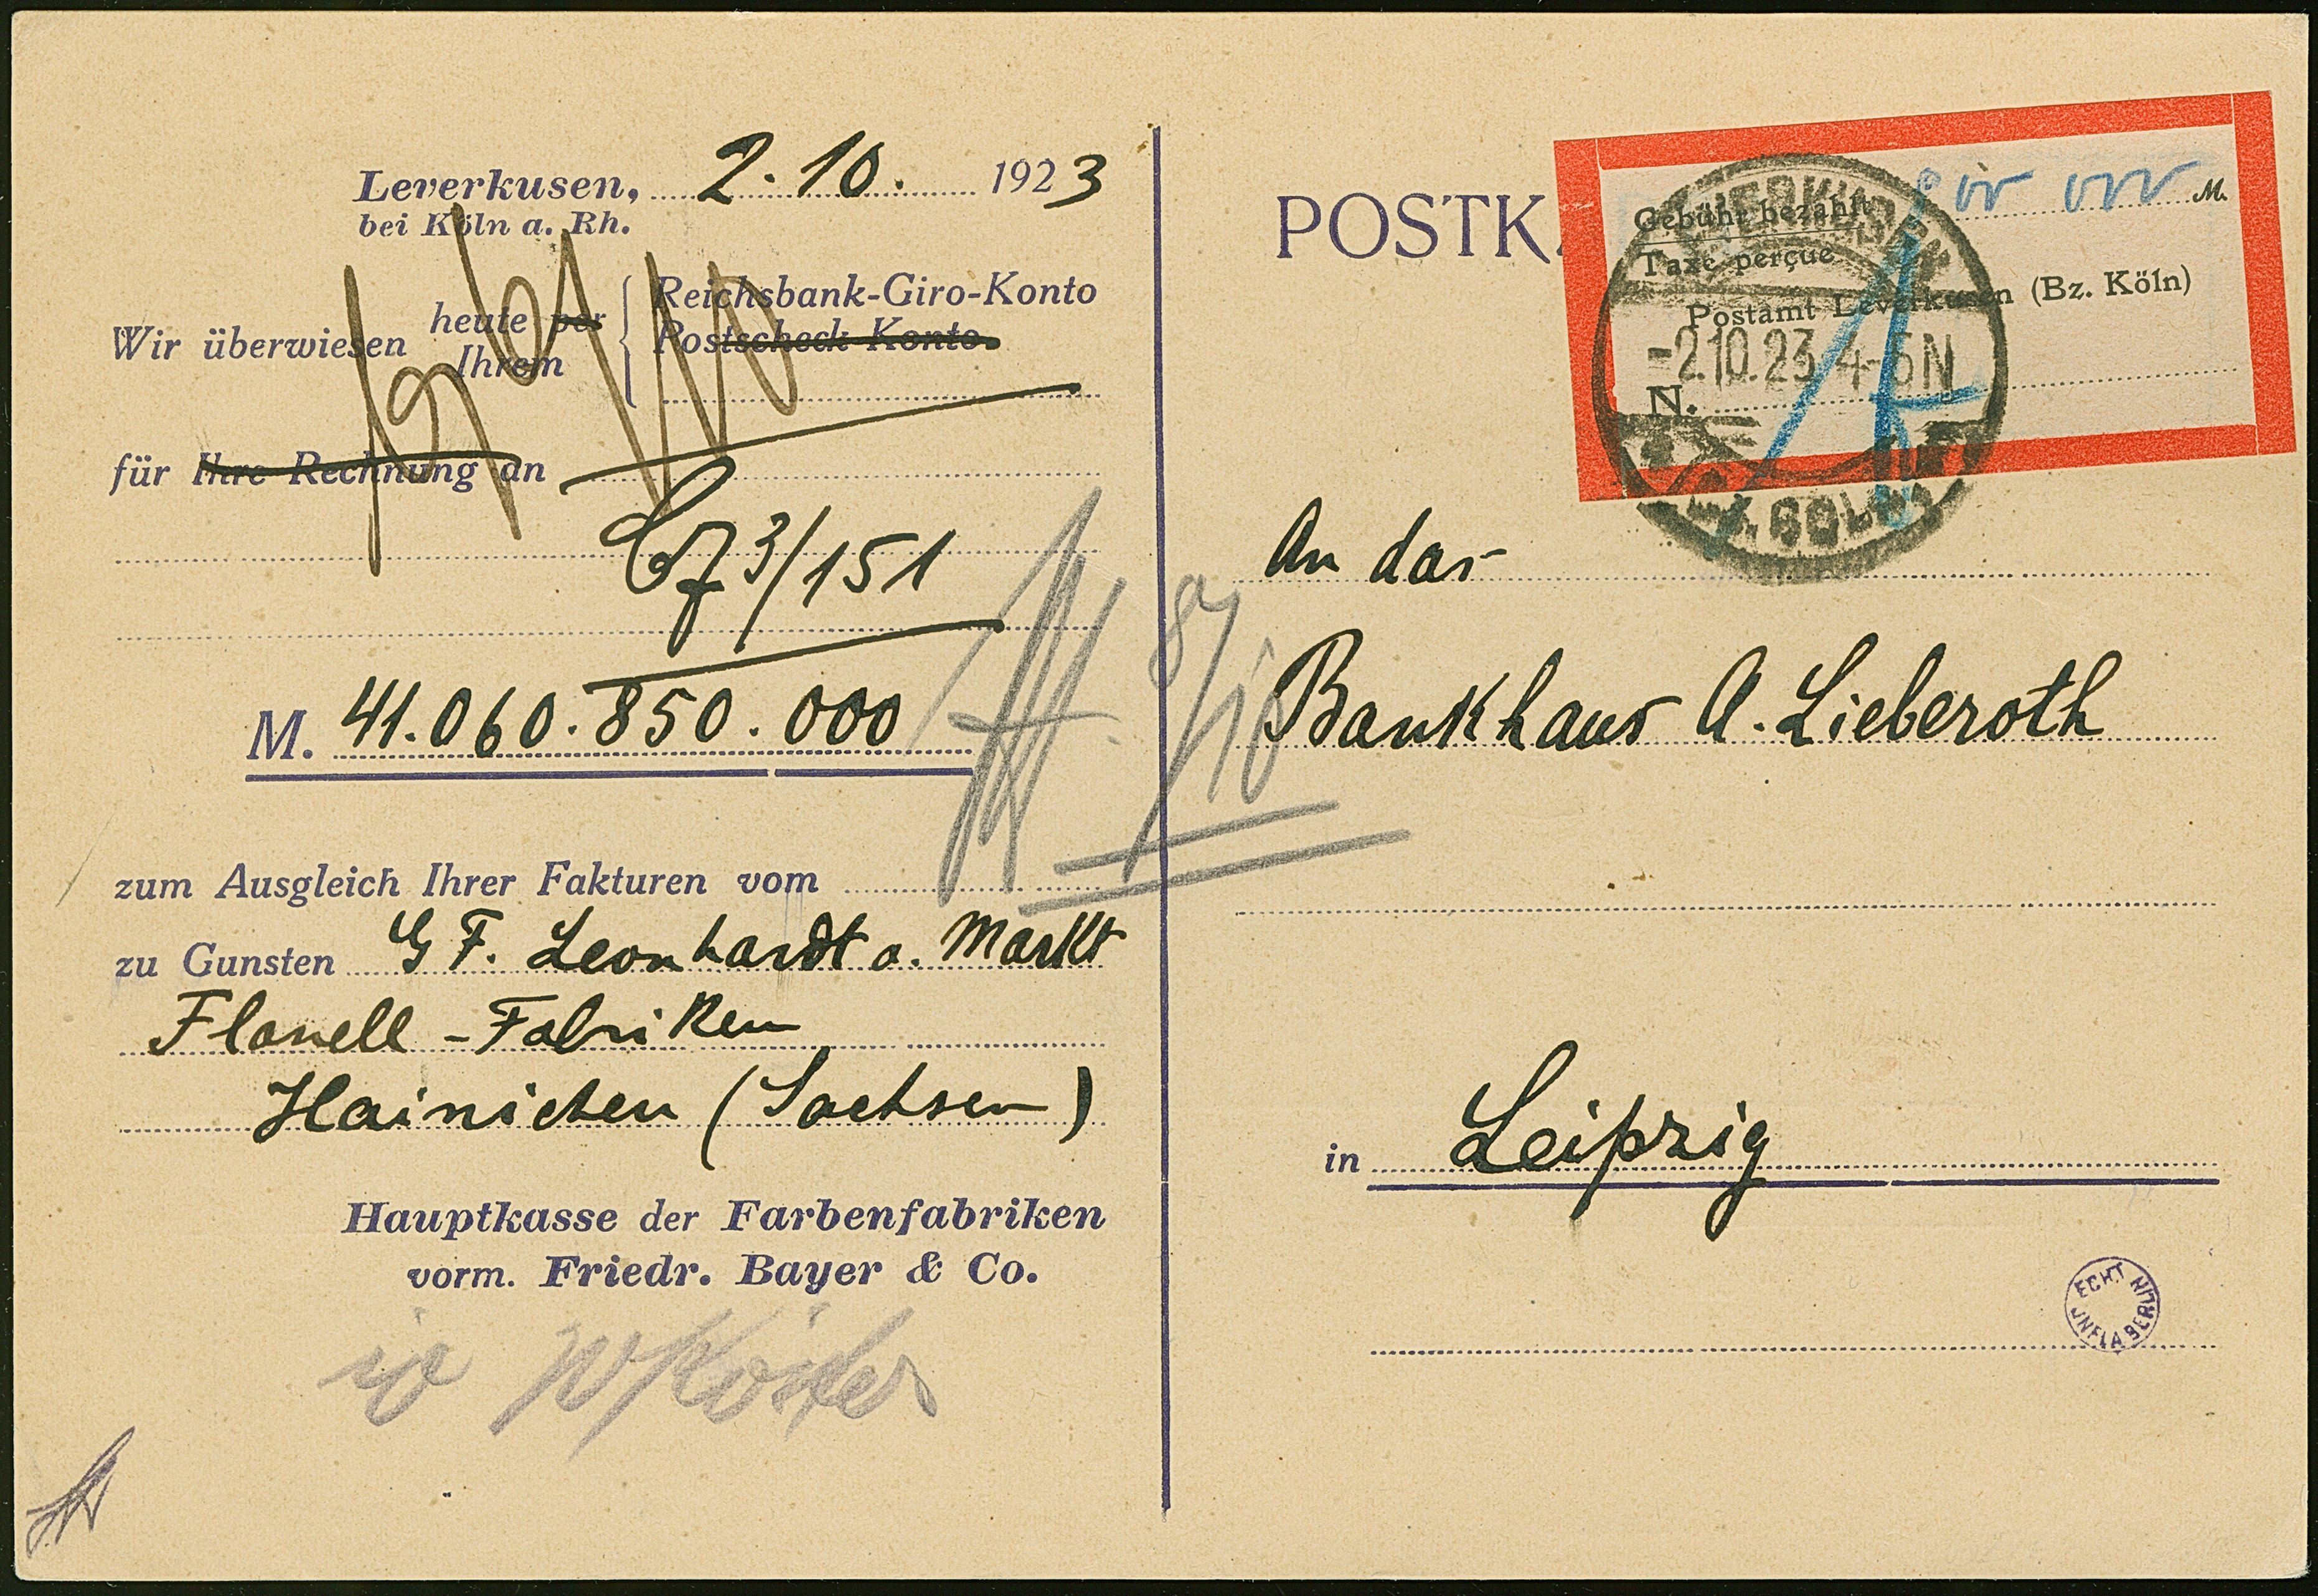 Leverkusen, 2. 10. 1923
bei Köln a. Rh.
Wir überwiesen heute per Ihrem
Reichsbank-Giro-Konto
Postscheck-Konto
für Ihre Rechnung an
3/151
M. 41.060.850.000
zum Ausgleich Ihrer Fakturen vom
zu Gunsten G F. Leonhardt a. Markt
Flanell-Fabriken
Hainichen (Sachsen)
Hauptkasse der Farbenfabriken
vorm. Friedr. Bayer & Co.
8/10
POSTK
M.
Gebühr bezahlt
Taxe perçue
Postamt Leverkusen (Bz. Köln)
N.
-2.10.23 4-5N
An das
Bankhaus A. Lieberoth
in Leipzig
ECHT
INFLA BERLIN